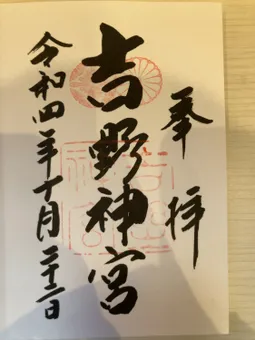 奉拝
吉野神宮
令和四年十月二十二日
吉野神宮